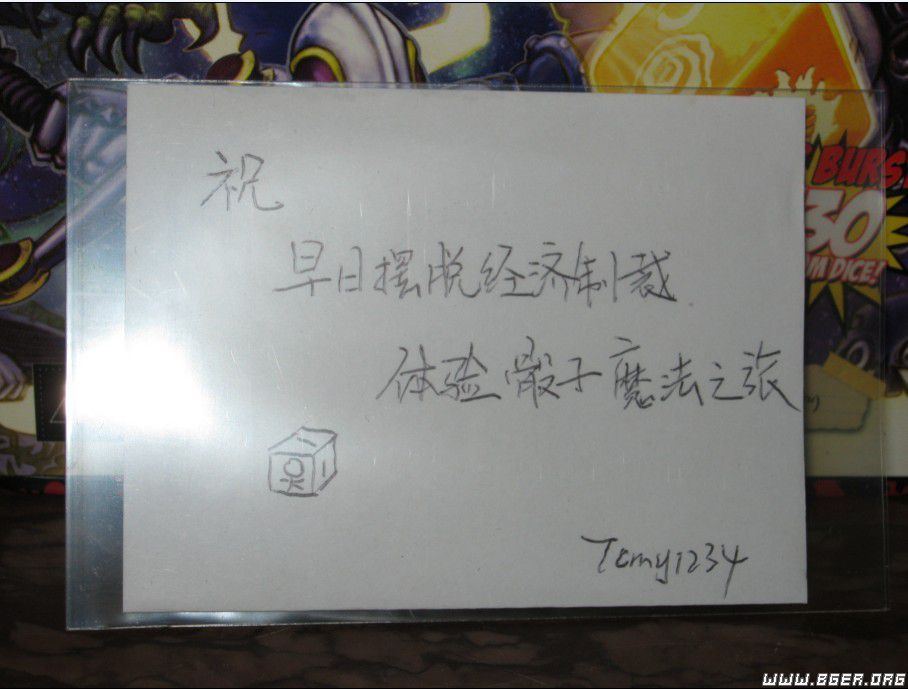 BURS
30
M DICE!
祝
早日摆脱经济制裁
体验骰子魔法之旅
Tomy1234
WWW.BGER.ORG